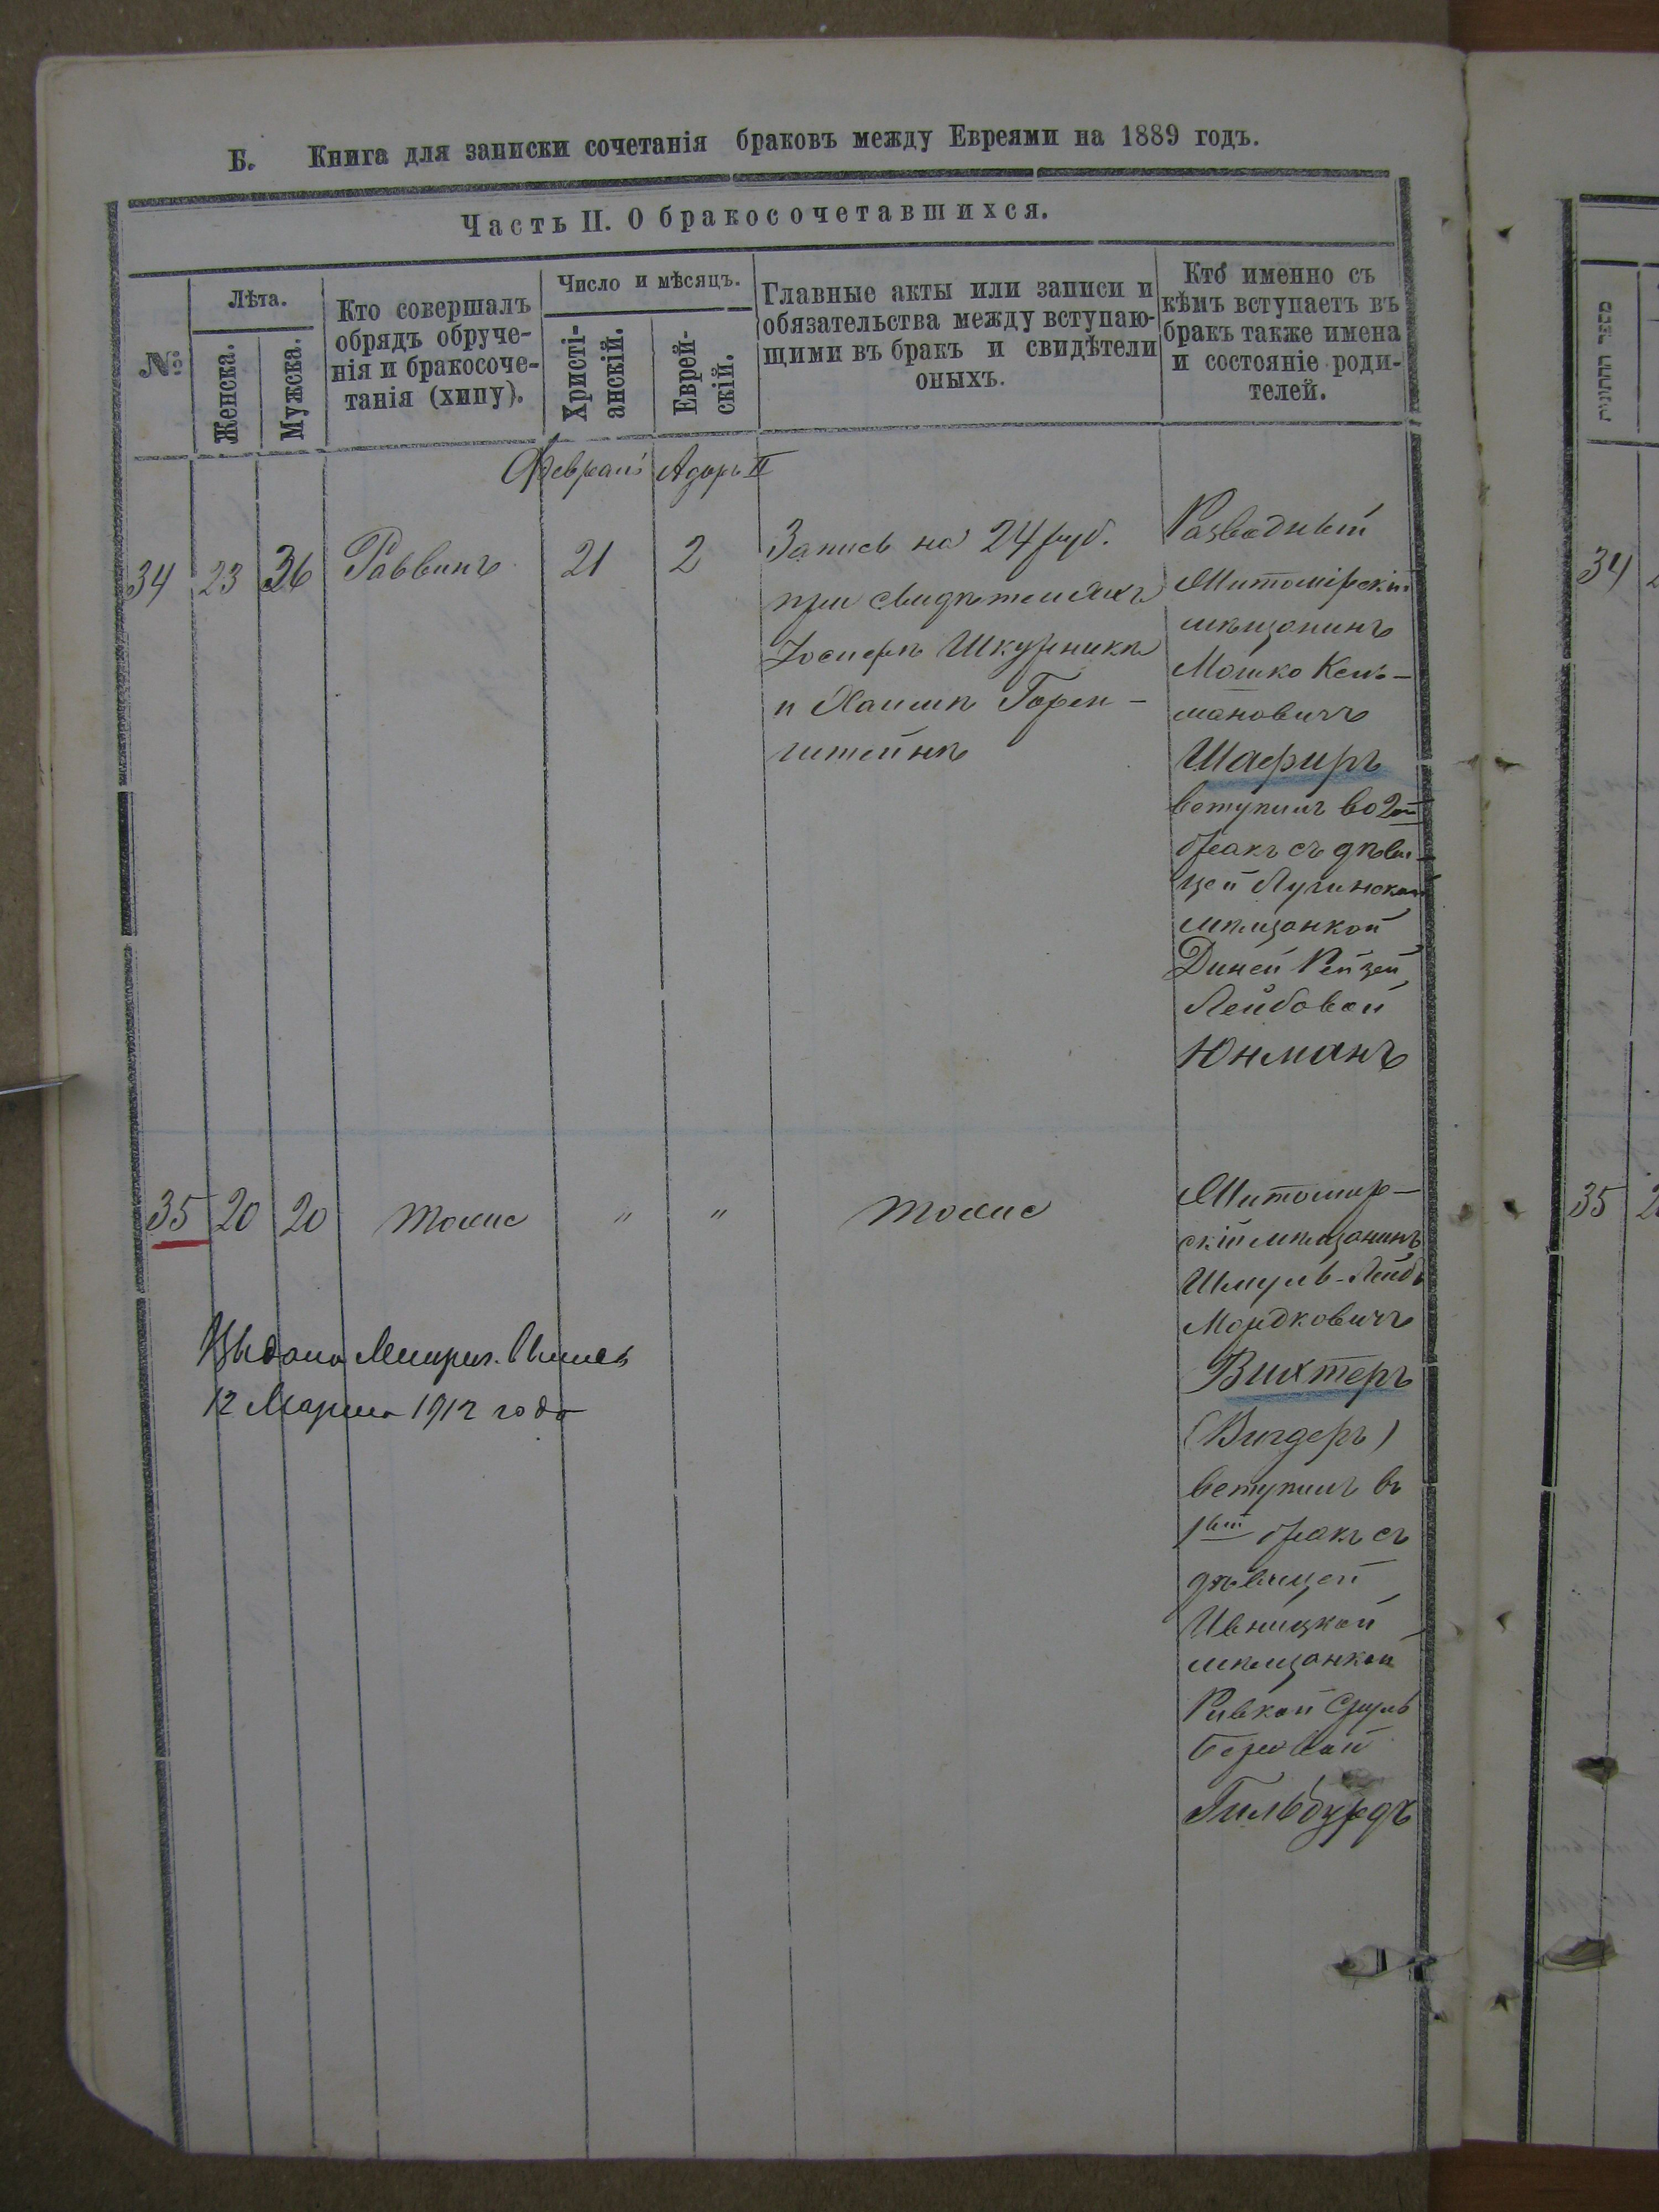 Б. Книга для записки сочетанія браковъ между Евреями на 1889 годъ.
Часть II. О бракосочетавшихся.
№
Лѣта.
Женска.
Мужска.
Кто совершалъ
обрядъ обруче-
нія и бракосоче-
танія (хипу).
Число и мѣсяцъ.
Христі-
анскій.
Еврей-
скій.
Главные акты или записи и
обязательства между вступаю-
щими въ бракъ и свидѣтели
оныхъ.
Кто именно съ
кѣмъ вступаетъ въ
бракъ также имена
и состояніе роди-
телей.
Февраль Адаръ II
34 23 36 Раввинъ 21 2
Запись на 24 руб.
при свидѣтеляхъ
Іосифѣ Шкурникѣ
и Хаимѣ Горен-
штейнѣ
Разводный
Житомірскій
мѣщанинъ
Мошко Кель-
мановичъ
Шафиръ
вступилъ во 2ой
бракъ съ дѣви-
цей Лугинской
мѣщанкой
Диней Рейзей
Лейбовой
Юнманъ
35 20 20 тоже " " тоже
Житомир-
скій мѣщанинъ
Шмуль-Лейбъ
Мордковичъ
Вихтеръ
(Вигдеръ)
вступилъ въ
1ый бракъ съ
дѣвицей
Ивницкой
мѣщанкой
Ривкой Сруль
Беровой
Гильбурдъ
Выдана Метрич. Выпись
12 Марта 1912 года
מספר החתונות
34
35